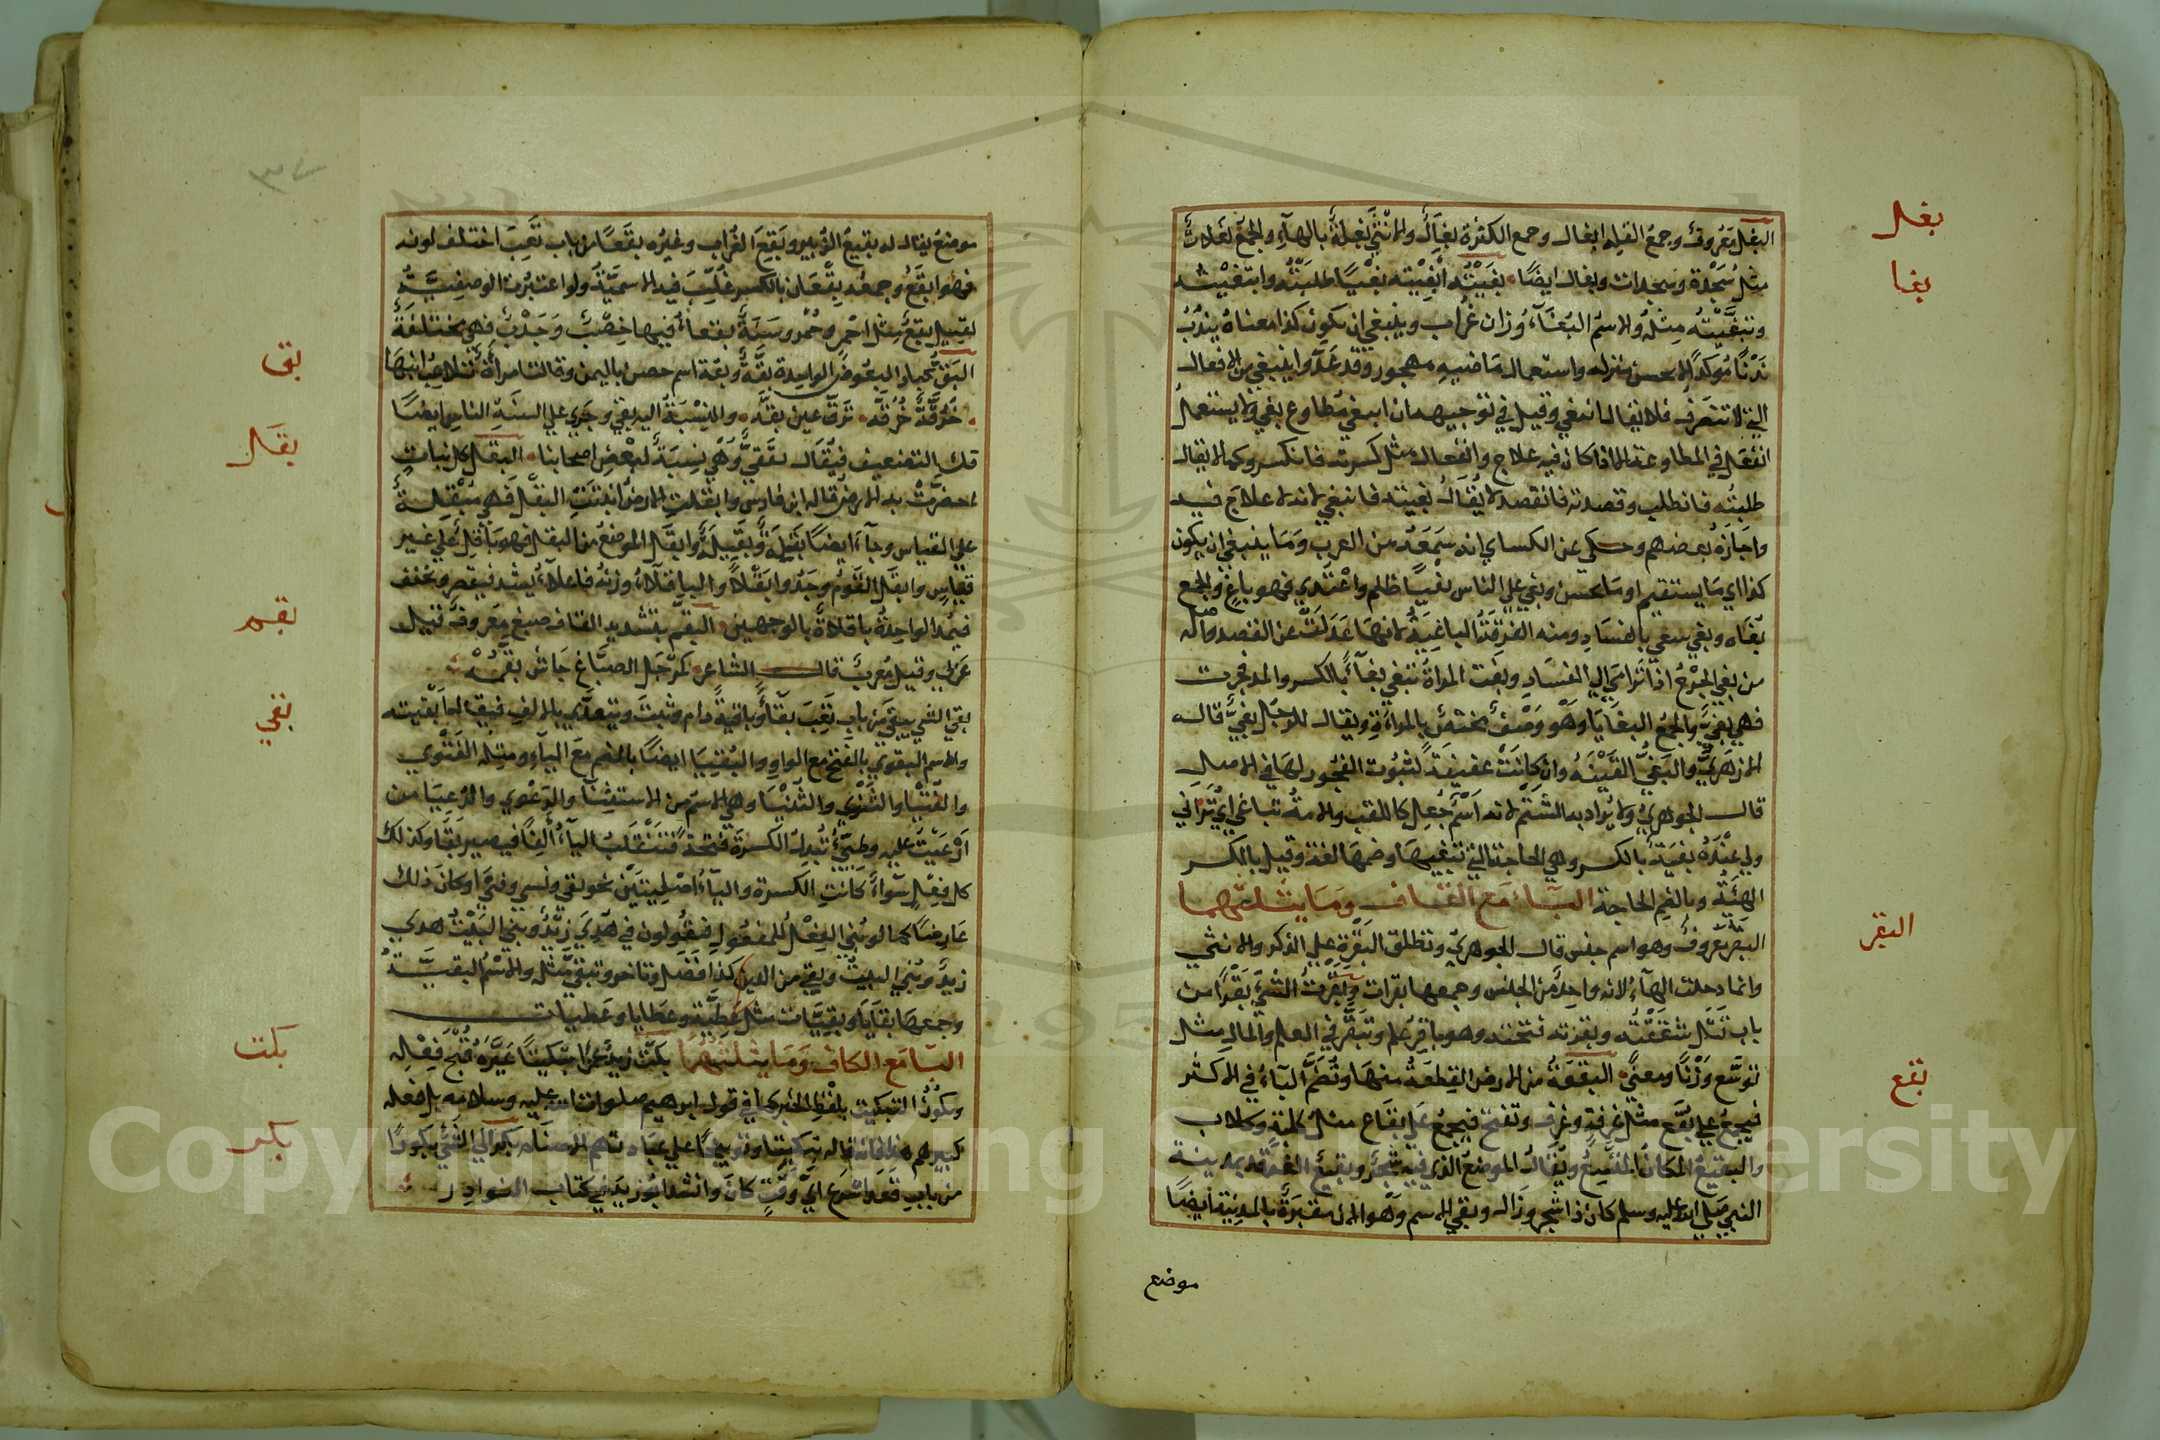 بغل
البغل معروف وجمع القلة ابغال وجمع الكثرة بغال والانثى بغلة بالهاء والجمع بغلات
بغا
مثل سجدة وسجدات وبغال ايضا بغيته ابغيته بغيا طلبته وابتغيته
وتبغيته مثله والاسم البغاء وزان غراب وينبغي ان يكون كذا معناه يندب
ندبا مؤكدا لا يحسن تركه واستعمال ماضيه مهجور وقد عدوا ينبغي من الافعال
التي لا تتصرف فلا يقال انبغى وقيل في توجيهه ان انبغى مطاوع بغى ولا يستعمل
انفعل في المطاوعة الا اذا كان فيه علاج وانفعال مثل كسرته فانكسر وكما لا يقال
طلبته فانطلب وقصدته فانقصد لا يقال بغيته فانبغى لانه لا علاج فيه
واجازه بعضهم وحكي عن الكساي انه سمعه من العرب وما ينبغي ان يكون
كذا اي ما يستقيم او ما يحسن وبغى على الناس بغيا ظلم واعتدى فهو باغ والجمع
بغاه وبغى سعى بالفساد ومنه الفرقة الباغية لانها عدلت عن القصد واصله
من بغى الجرح اذا ترامى الى الفساد وبغت المراة تبغي بغاء بالكسر والمد فجرت
فهي بغي والجمع البغايا وهو وصف مختص بالمراة ولا يقال للرجل بغي قاله
الازهري والبغي القينة وان كانت عفيفة لثبوت الفجور لها في الاصل
قال الجوهري ولا يراد به الشتم لانه اسم جعل كاللقب والامة تباغي اي تزاني
ولي عنده بغية بالكسر وهي الحاجة التي تبغيها وضمها لغة وقيل بالكسر
الهيئة وبالضم الحاجة الباء مع القاف وما يثلثهما
البقر
البقر معروف وهو اسم جنس قال الجوهري وتطلق البقرة على الذكر والانثى
وانما دخلت الهاء لانه واحد من الجنس وجمعها بقرات وبقرت الشيء بقرا من
باب قتل شققته وبقرته فتحته وهو باقر علم وتبقر في العلم والمال مثل
بقع
توسع وزنا ومعنى البقعة من الارض القطعة منها وتضم الباء في الاكثر
فيجمع على بقع مثل غرفة وغرف وتفتح فيجمع على بقاع مثل كلبة وكلاب
والبقيع المكان المتسع ويقال الموضع الذي فيه شجر وبقيع الغرقد بمدينة
النبي صلى الله عليه وسلم كان ذا شجر وزال وبقي الاسم وهو الان مقبرة بالمدينة ايضا
موضع
٣٧
موضع يقال له بقيع الزبير وبقع الغراب وغيره بقعا من باب تعب اختلف لونه
فهو ابقع وجمعه بقعان بالكسر غلب فيه الاسمية ولو اعتبرت الوصفية
لقيل بقع مثل احمر وحمر وسنة بقعاء فيها خصب وجدب فهي مختلفة
بقق
البق كبار البعوض الواحدة بقة وبقة اسم حصن باليمن وقالت امراة تلاعب ابنها
حزقة حزقه ترق عين بقه والنسبة اليه بقي وجرى على السنة الناس ايضا
بقل
فك التضعيف فيقال بققي وهي نسبة لبعض اصحابنا البقل كل نبات
اخضرت به الارض قاله ابن فارس وابقلت الارض انبتت البقل فهي مبقلة
على القياس وجاء ايضا بقلة وبقيلة وابقل الموضع من البقل فهو باقل على غير
قياس وابقل القوم وجدوا بقلا والباقلاء وزنه فاعلاء يشدد فيقصر ويخفف
بقم
فيمد الواحدة باقلاة بالوجهين البقم بتشديد القاف صبغ معروف قيل
عربي وقيل معرب قال الشاعر كمرجل الصباغ جاش بقمه
بقي
بقي الشي يبقى من باب تعب بقاء وباقية دام وثبت ويتعدى بالالف فيقال ابقيته
والاسم البقوى بالفتح مع الواو والبقيا ايضا بالضم مع الياء ومثله الفتوى
والفتيا والثنوى والثنيا وهي الاسم من الاستثنا والرعوى والرعيا من
ارعيت عليه وطيئ تبدل الكسرة فتحة فتنقلب الياء الفا فيصير بقا وكذلك
كل فعل سواء كانت الكسرة والياء اصليتين نحو بقي ونسي وفني او كان ذلك
عارضا كما لو بني الفعل للمفعول فيقولون في هدي زيد وبني البيت هدى
زيد وبنى البيت وبقي من الدين كذا فضل وتاخر وتبقى مثله والاسم البقية
وجمعها بقايا وبقيات مثل عطية وعطايا وعطيات
بكت
البا مع الكاف وما يثلثهما بكت زيد عمرا تبكيتا عيره وقبح فعله
ويكون التبكيت بلفظ الخبر كما في قول ابراهيم صلوات الله عليه وسلامه بل فعله
بكر
كبيرهم هذا فانه قاله تبكيتا وتوبيخا على عبادتهم الاصنام بكر الى الشيء بكورا
من باب قعد اسرع اي وقت كان وانشد ابو زيد في كتاب النوادر